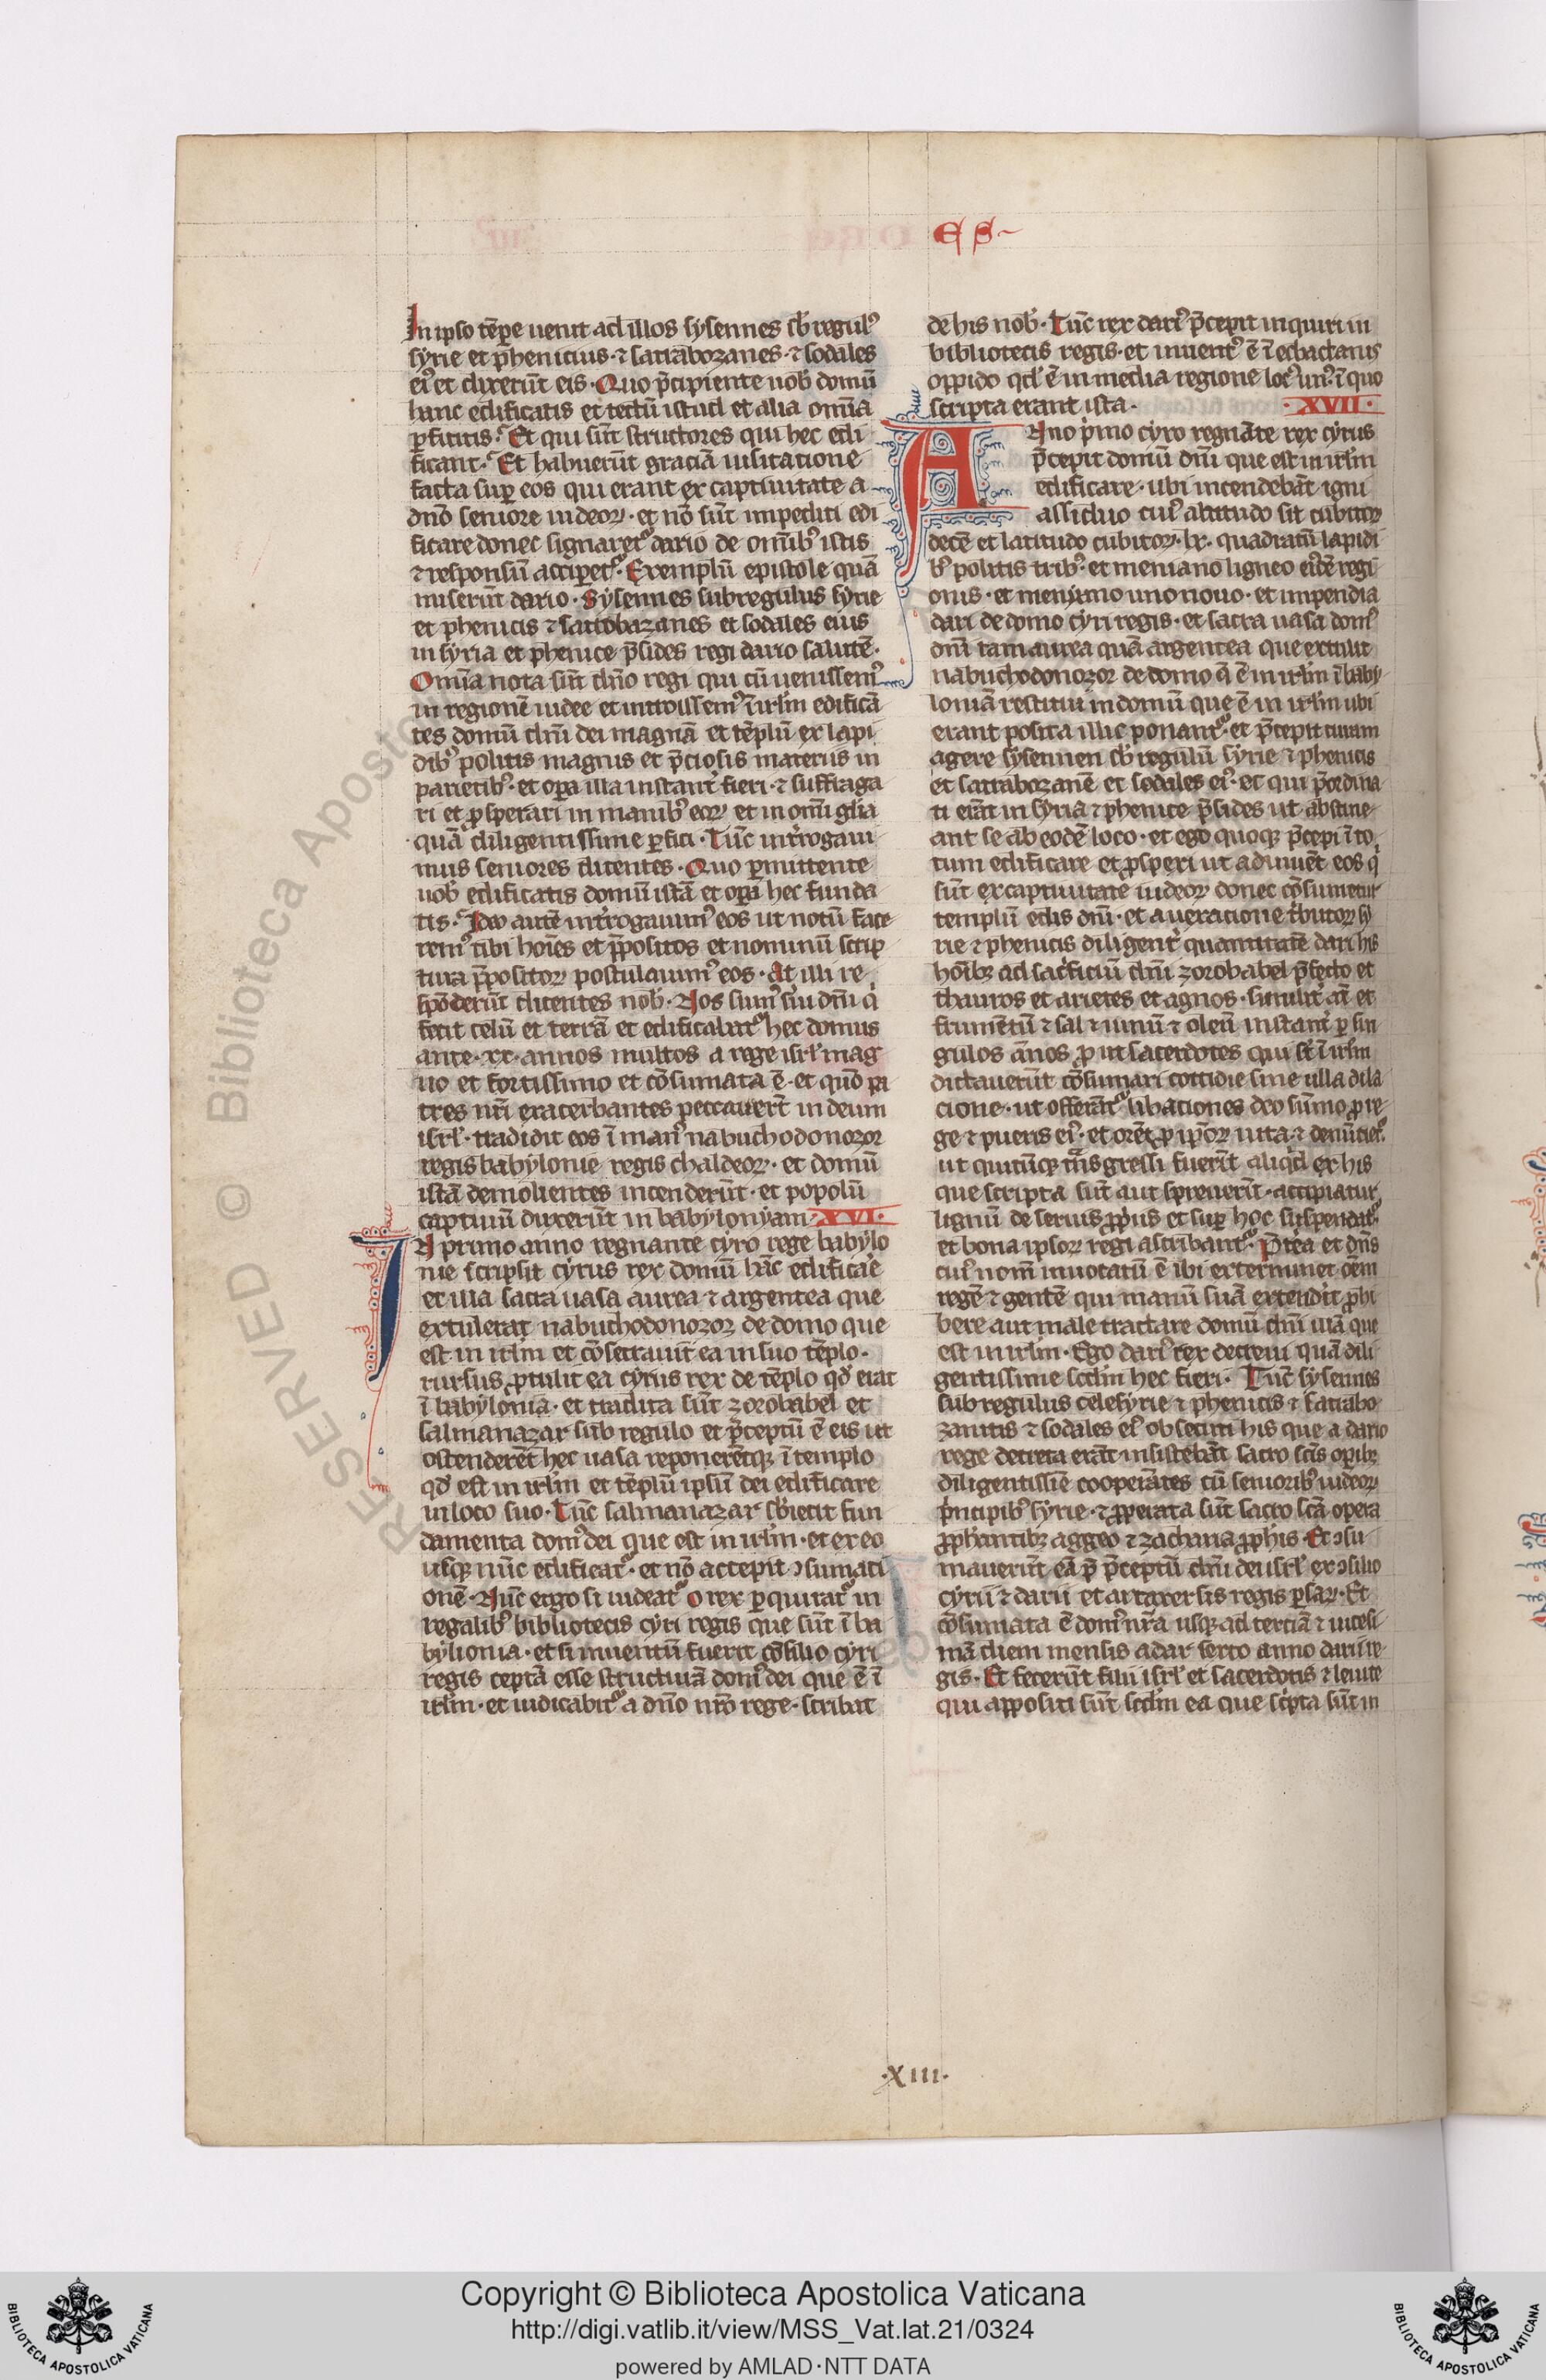 ES
In ipso tēpe uenit ad illos sysennes sb regul᷒
syrie et phenicius · ⁊ satrabozanes · ⁊ sodales
ei᷒ et dixerūt eis · Quo p̄cipiente uob̄ domū
hanc edificatis et tectū istud et alia om̄ia
ꝑficitis · Et qui sūt structores qui hec edi
ficant · Et habuerūt graciā uisitatione
facta suꝑ eos qui erant ex captiuitate a
dn̄o seniore iudeoꝝ · et nō sūt impediti edi
ficare donec signaret᷒ dario de om̄ib᷒ istis
⁊ responsū acciꝑet᷒ · Exemplū epistole quā
miserūt dario · Sysennes subregulus syrie
et phenicis ⁊ satrobazanes et sodales eius
in syria et phenice p̄sides regi dario salutē ·
Om̄ia nota sūt dn̄o regi qui cū uenissem᷒
in regionē iudee et introissem᷒ ī irl̄m edificā
tes domū dn̄i dei magnā et tēplū ex lapi
dib᷒ politis magnis et p̄ciosis materiis in
parietib᷒ · et oꝑa illa instant̄ fieri · ⁊ suffraga
ri et ꝓsperari in manib᷒ eoꝝ et in om̄i gl̄ia
quā diligentissime ꝑfici · Tūc int̄rogaui
mus seniores dicentes · Quo ꝑmittente
uob̄ edificatis domū istā et oꝑa hec funda
tis · Ideo autē int̄rogauim᷒ eos ut notū face
rem᷒ tibi hoīes et p̄positos et nominū scrip
tura p̄positoꝝ postulauim᷒ eos · At illi re
spōderūt dicentes nob̄ · Nos sum᷒ s̄ui dn̄i q̄
fecit celū et terrā et edificabat᷒ hec domus
ante · xx · annos multos a rege isrl̄ mag
no et fortissimo et cōsumata ē · et quō pa
tres nr̄i exacerbantes peccauer̄t in deum
isrl̄ · tradidit eos ī man᷒ nabuchodonozor
regis babylonie regis chaldeoꝝ · et domū
istā demolientes incenderūt · et popolū
captiuū duxerūt in babylonyam · XVI ·
IN primo anno regnante cyro rege babylo
nie scripsit cyrus rex domū hāc edificare
et illa sacra uasa aurea ⁊ argentea que
extulerat nabuchodonozor de domo que
est in irl̄m et cōsecrauit ea in suo tēplo ·
rursus ꝓtulit ea cyrus rex de tēplo qd̄ erat
ī babyloniā · et tradita sūt zorobabel et
salmanazar sub regulo et p̄ceptū ē eis ut
ostenderēt hec uasa reponerētqꝫ ī templo
qd̄ est in irl̄m et tēplū ipsū dei edificare
in loco suo · Tūc salmanazar sb̄iecit fun
damenta dom᷒ dei que est in irl̄m · et ex eo
usqꝫ nūc edificat᷒ · et nō accepit ↄsumati
onē · Nūc ergo si uideat᷒ o rex ꝑquirat᷒ in
regalib᷒ bibliotecis cyri regis que sūt ī ba
bylionia · et si inuentū fuerit cōsilio cyri
regis ceptā esse structurā dom᷒ dei que ē ī
irl̄m · et iudicabit᷒ a dn̄o nr̄o rege · scribat
de his nob̄ · Tūc rex dari᷒ p̄cepit inquiri in
bibliotecis regis · et inuent᷒ ē ī ecbactanis
oppido qd̄ ē in media regione loc᷒ un᷒ · ī quo
scripta erant ista · · XVII ·
ANno p̄mo cyro regnāte rex cyrus
p̄cepit domū dn̄i que est in irl̄m
edificare · ubi incendebāt igni
assiduo cui᷒ altitudo fit cubitoꝝ
decē et latitudo cubitoꝝ · lx · quadratū lapidi
b᷒ politis trib᷒ · et meniano ligneo eiusdē regi
onis · et menyano uno nouo · et impendia
dari de domo cyri regis · et sacra uasa dom᷒
dn̄i tam aurea quā argentea que extulit
nabuchodonozor de domo q̄ ē in irl̄m ī baby
loniā restitui in domū que ē in irl̄m ubi
erant posita illic ponant᷒ · et p̄cepit curam
agere sysennen sb̄ regulū syrie ⁊ phenicis
et satrabozanē et sodales ei᷒ · et qui p̄ordina
ti erāt in syria ⁊ phenice p̄sides ut abstine
ant se ab eodē loco · et ego quoqꝫ p̄cepi ī to
tum edificare et ꝓsperi ut adiuuēt eos q̄
sūt ex captiuitate iudeoꝝ donec cōsumetur
templū edis dn̄i · et a uexacione t̄butoꝝ sy
rie ⁊ phenicis diligent̄ quantitatē dari his
hoībꝫ ad sac̄ficiū dn̄i zorobabel p̄fecto et
thauros et arietes et agnos · similit̄ aū et
frumētū ⁊ sal ⁊ uinū ⁊ oleū instant̄ ꝑ sin
gulos ānos ꝓ ut sacerdotes qui st̄ ī irl̄m
dictauerūt cōsumari cottidie sine ulla dila
cione · ut offerāt᷒ libationes deo sūmo ꝓ re
ge ⁊ pueris ei᷒ · et orēt ꝓ ip̄oꝝ uita · ⁊ denūciet᷒
ut quicūqꝫ t̄nsgressi fuerīt aliqd̄ ex his
que scripta sūt aut spreuerīt · accipiatur
lignū de seruis ꝓpriis et suꝑ hoc suspendat᷒
et bona ipsoꝝ regi ascribant᷒ · P̄t̄ea et dn̄s
cui᷒ nom̄ inuocatū ē ibi exterminet oēm
regē ⁊ gentē qui manū suā extendit ꝓhi
bere aut male tractare domū dn̄i illā que
est in irl̄m · Ego dari᷒ rex decreui quā dili
gentissime scdm̄ hec fieri · Tūc sysennes
sub regulus celesyrie ⁊ phenicis ⁊ satrabo
zanitis ⁊ sodales ei᷒ obsecuti his que a dario
rege decreta erāt insistebāt sacro scīs oꝑibꝫ
diligentissīe cooperātes cū seniorib᷒ iudeoꝝ
p̄ncipib᷒ syrie · ⁊ ꝓsperata sūt sacro scā opera
ꝓphantibꝫ aggeo ⁊ zacharia ꝓphīs · Et ↄsu
mauerūt eā p̄ p̄ceptū dn̄i dei isrl̄ ex ↄsilio
cyrii ⁊ darii et artaxersis regis ꝑsaꝝ · Et
cōsumata ē dom᷒ nr̄a usqꝫ ad terciā ⁊ uicesi
mā diem mensis adar sexto anno darii re
gis · Et fecerūt filii isrl̄ et sacerdotis ⁊ leuite
qui appositi sūt scdm̄ ea que sc̄pta sūt in
· XIII ·
RESERVED © Biblioteca Aposto
Copyright © Biblioteca Apostolica Vaticana
http://digi.vatlib.it/view/MSS_Vat.lat.21/0324
powered by AMLAD·NTT DATA
BIBLIOTECA APOSTOLICA VATICANA
BIBLIOTECA APOSTOLICA VATICANA